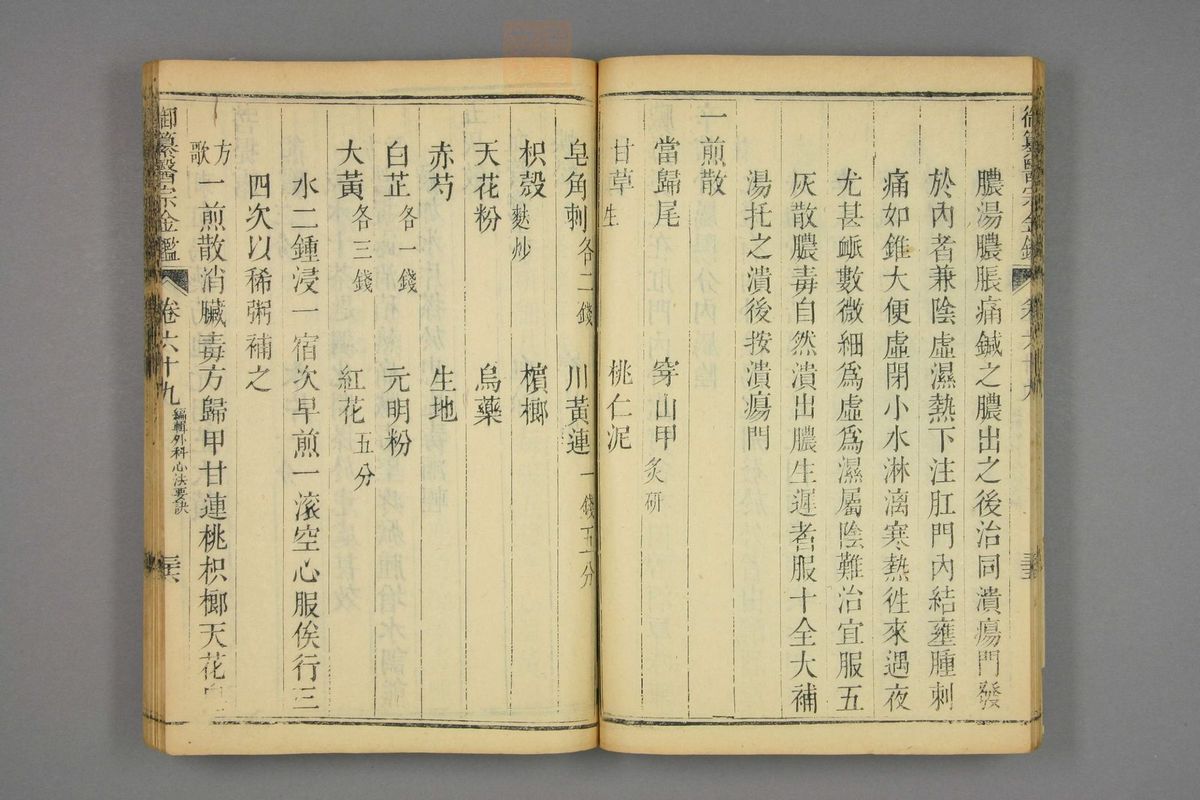 御纂醫宗金鑑
膿湯膿脹痛鍼之膿出之後治同潰瘍門發
於內者兼陰虛濕熱下注肛門內結壅腫刺
痛如錐大便虛閉小水淋漓寒熱徃來遇夜
尤甚衇數微細爲虛爲濕屬陰難治宜服五
灰散膿毒自然潰出膿生遲者服十全大補
湯托之潰後按潰瘍門
一煎散
當歸尾 穿山甲 炙研
甘草 生 桃仁泥
皂角刺 各二錢 川黃連 一錢五分
枳殼 麩炒 檳榔
天花粉 烏藥
赤芍 生地
白芷 各一錢 元明粉
大黃 各三錢 紅花 五分
水二鍾浸一宿次早煎一滾空心服俟行三
四次以稀粥補之
方歌 一煎散消臟毒方歸甲甘連桃枳榔天花
御纂醫宗金鑑 卷六十九 編輯外科心法要訣